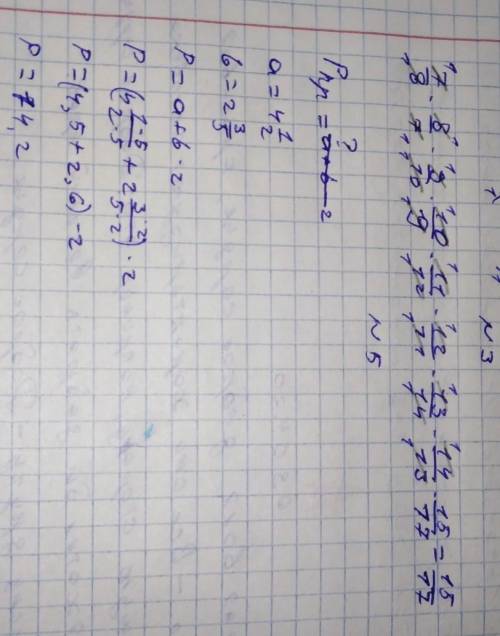 N 3
7/8 · 8/7 · 9/10 · 10/9 · 11/12 · 12/11 · 13/14 · 14/13 · 15/17 = 15/17
N 5
P = a+b 2
a = 4 1/2
b = 2 3/5
P = a + b · 2
P = (4 1·5/2·5 + 2 3·2/5·2) · 2
P = (4,5 + 2,6) · 2
P = 14,2